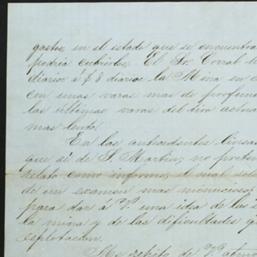 gastos en el estado que se encuentra
podria cubrirlos. El Sr. Corral
diarios á $8 diarios la Mina en
con unas varas mas de profun
las ultimas varas del tiro
mas lento.
En las antecedentes
que si de S. Martin, no
relato como informe, el cual
de un examen mas minucioso
para dar á V. una idea de las
la mina y de las dificultades q
esplotacion.
Me repito de V. aten